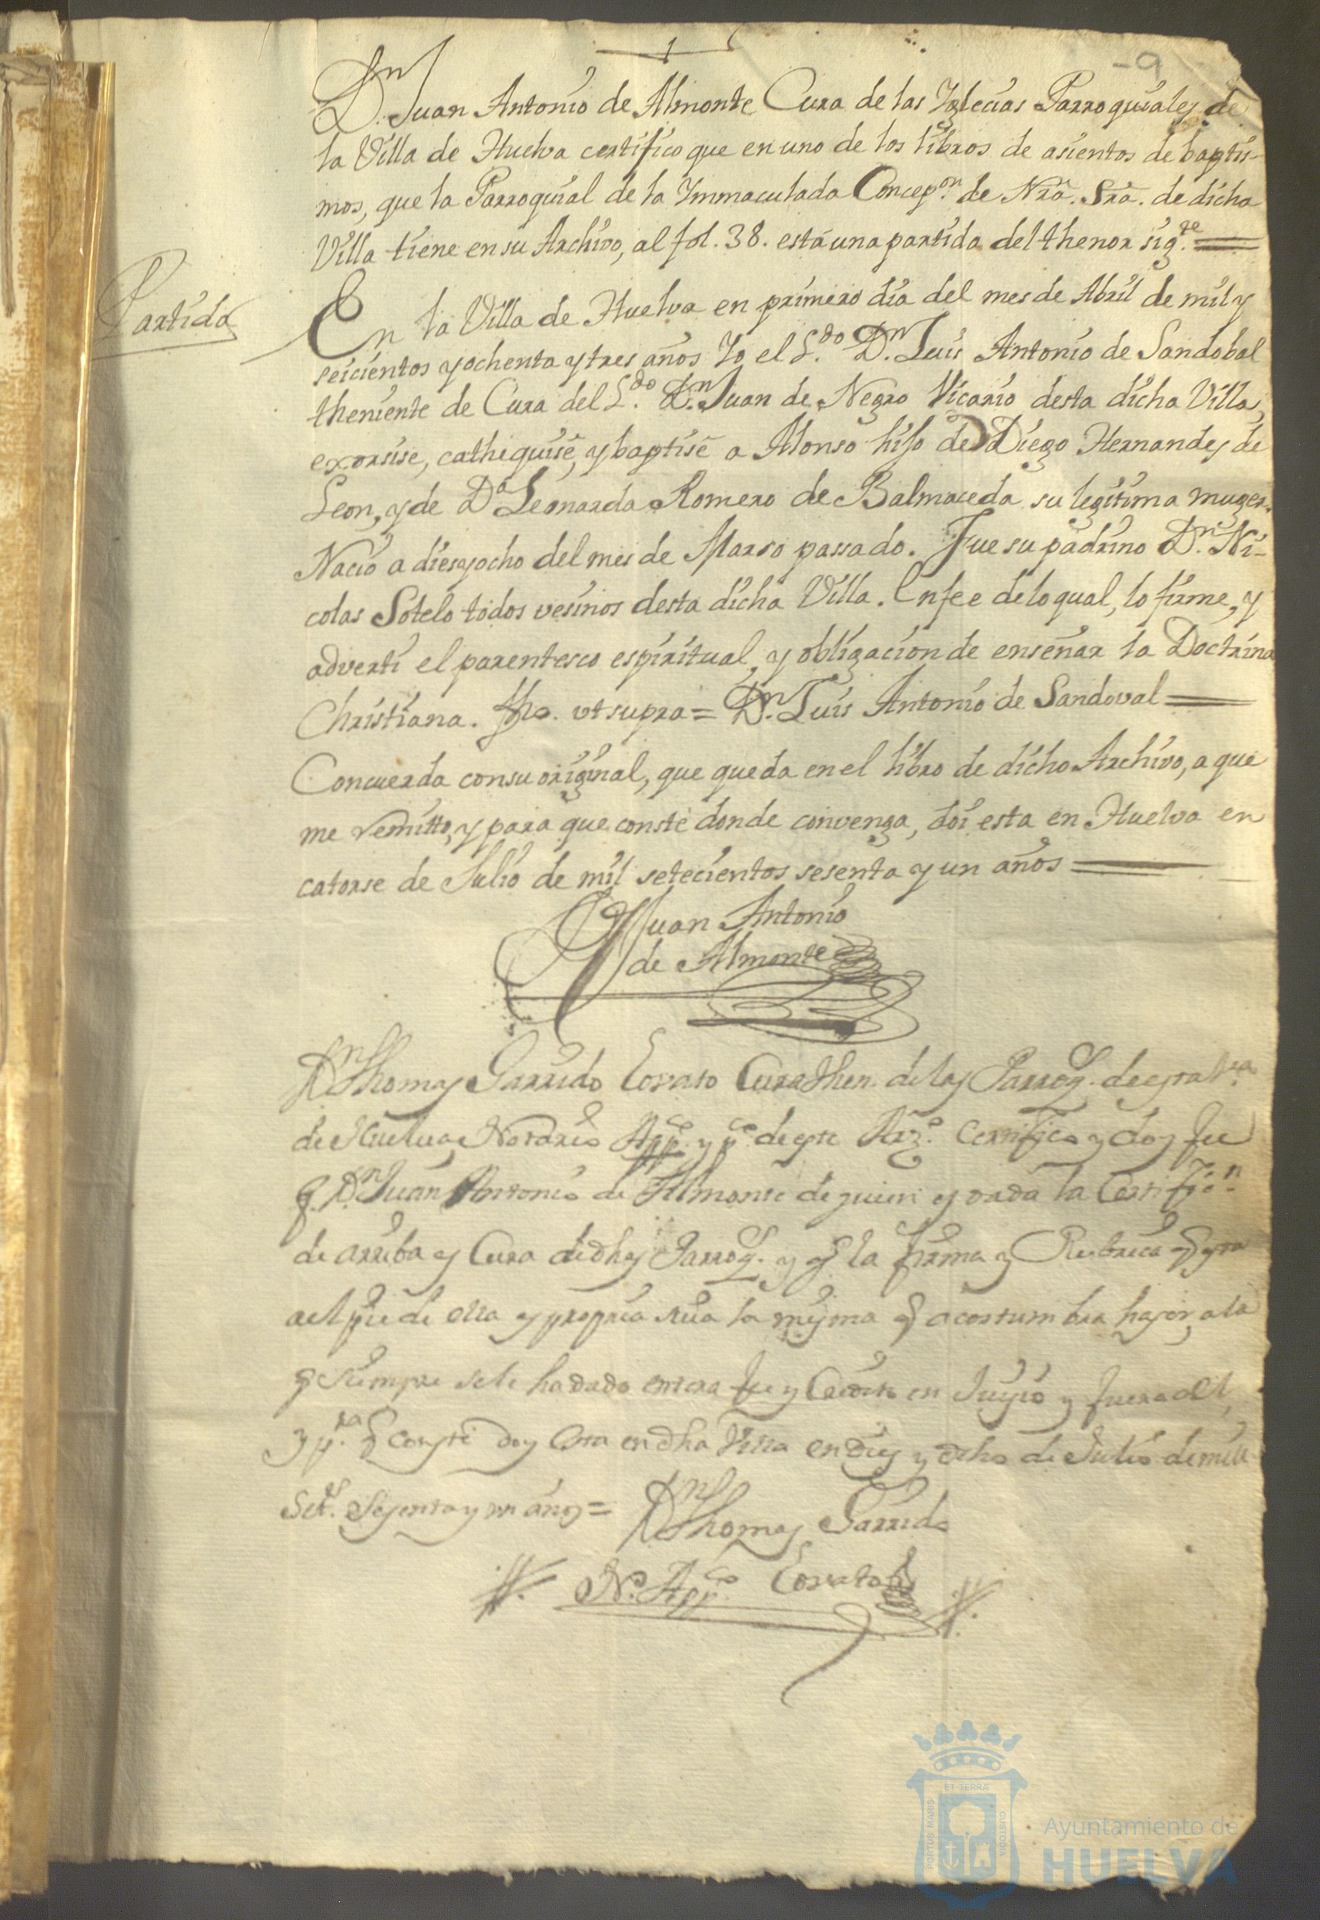 9
D.n Juan Antonio de Almonte Cura de las Yglecias Parroquiales de
la Villa de Huelva certifico que en uno de los libros de asientos de baptis-
mos, que la Parroquial de la Ymmaculada Concep.on de Nra. Sra. de dicha
Villa tiene en su Archivo, al fol. 38. está una partida del thenor sig.te
Partida
En la Villa de Huelva en primero dia del mes de Abril de mil y
seicientos y ochenta y tres años Yo el L.do D.n Luis Antonio de Sandobal
theniente de Cura del L.do D.n Juan de Negro Vicario desta dicha Villa,
exorsise, cathequisé, y baptisé a Alonso hijo de Diego Hernandes de
Leon, y de D.a Leonarda Romero de Balmaceda su legitima muger.
Nacio a dies y ocho del mes de Marso passado. Fue su padrino D.n Ni-
colas Sotelo todos vesinos desta dicha Villa. En fee de lo qual, lo firme, y
adverti el parentesco espiritual, y obligacion de enseñar la Doctrina
Christiana. fho. ut supra = D.n Luis Antonio de Sandoval
Concuerda con su original, que queda en el libro de dicho Archivo, a que
me remitto, y para que conste donde convenga, doi esta en Huelva en
catorse de Julio de mil setecientos sesenta y un años
Juan Antonio
de Almonte
D.n Thomas Garrido Cura then. de las Parroq. de esta V.a
de Huelva, Notario App.co y p.co de este Arz.o Certifico y doy fee
q. D.n Juan Antonio de Almonte de quien es dada la Certif.on
de arriba es Cura de dhas Parroq. y q la firma y Rubrica q esta
al pie de ella es propria suia la misma q acostumbra haser, a la
q siempre se le ha dado entera fee y Credito en Juysio y fuera del,
y p.ra q conste doy esta en dha Villa en Dies y ocho de Julio de mill
Set.s Sesenta y un años =
D.n Thomas Garrido
N.o App.co
ET TERRÆ
PORTUS MARIS
CUSTODIA
Ayuntamiento de
HUELVA